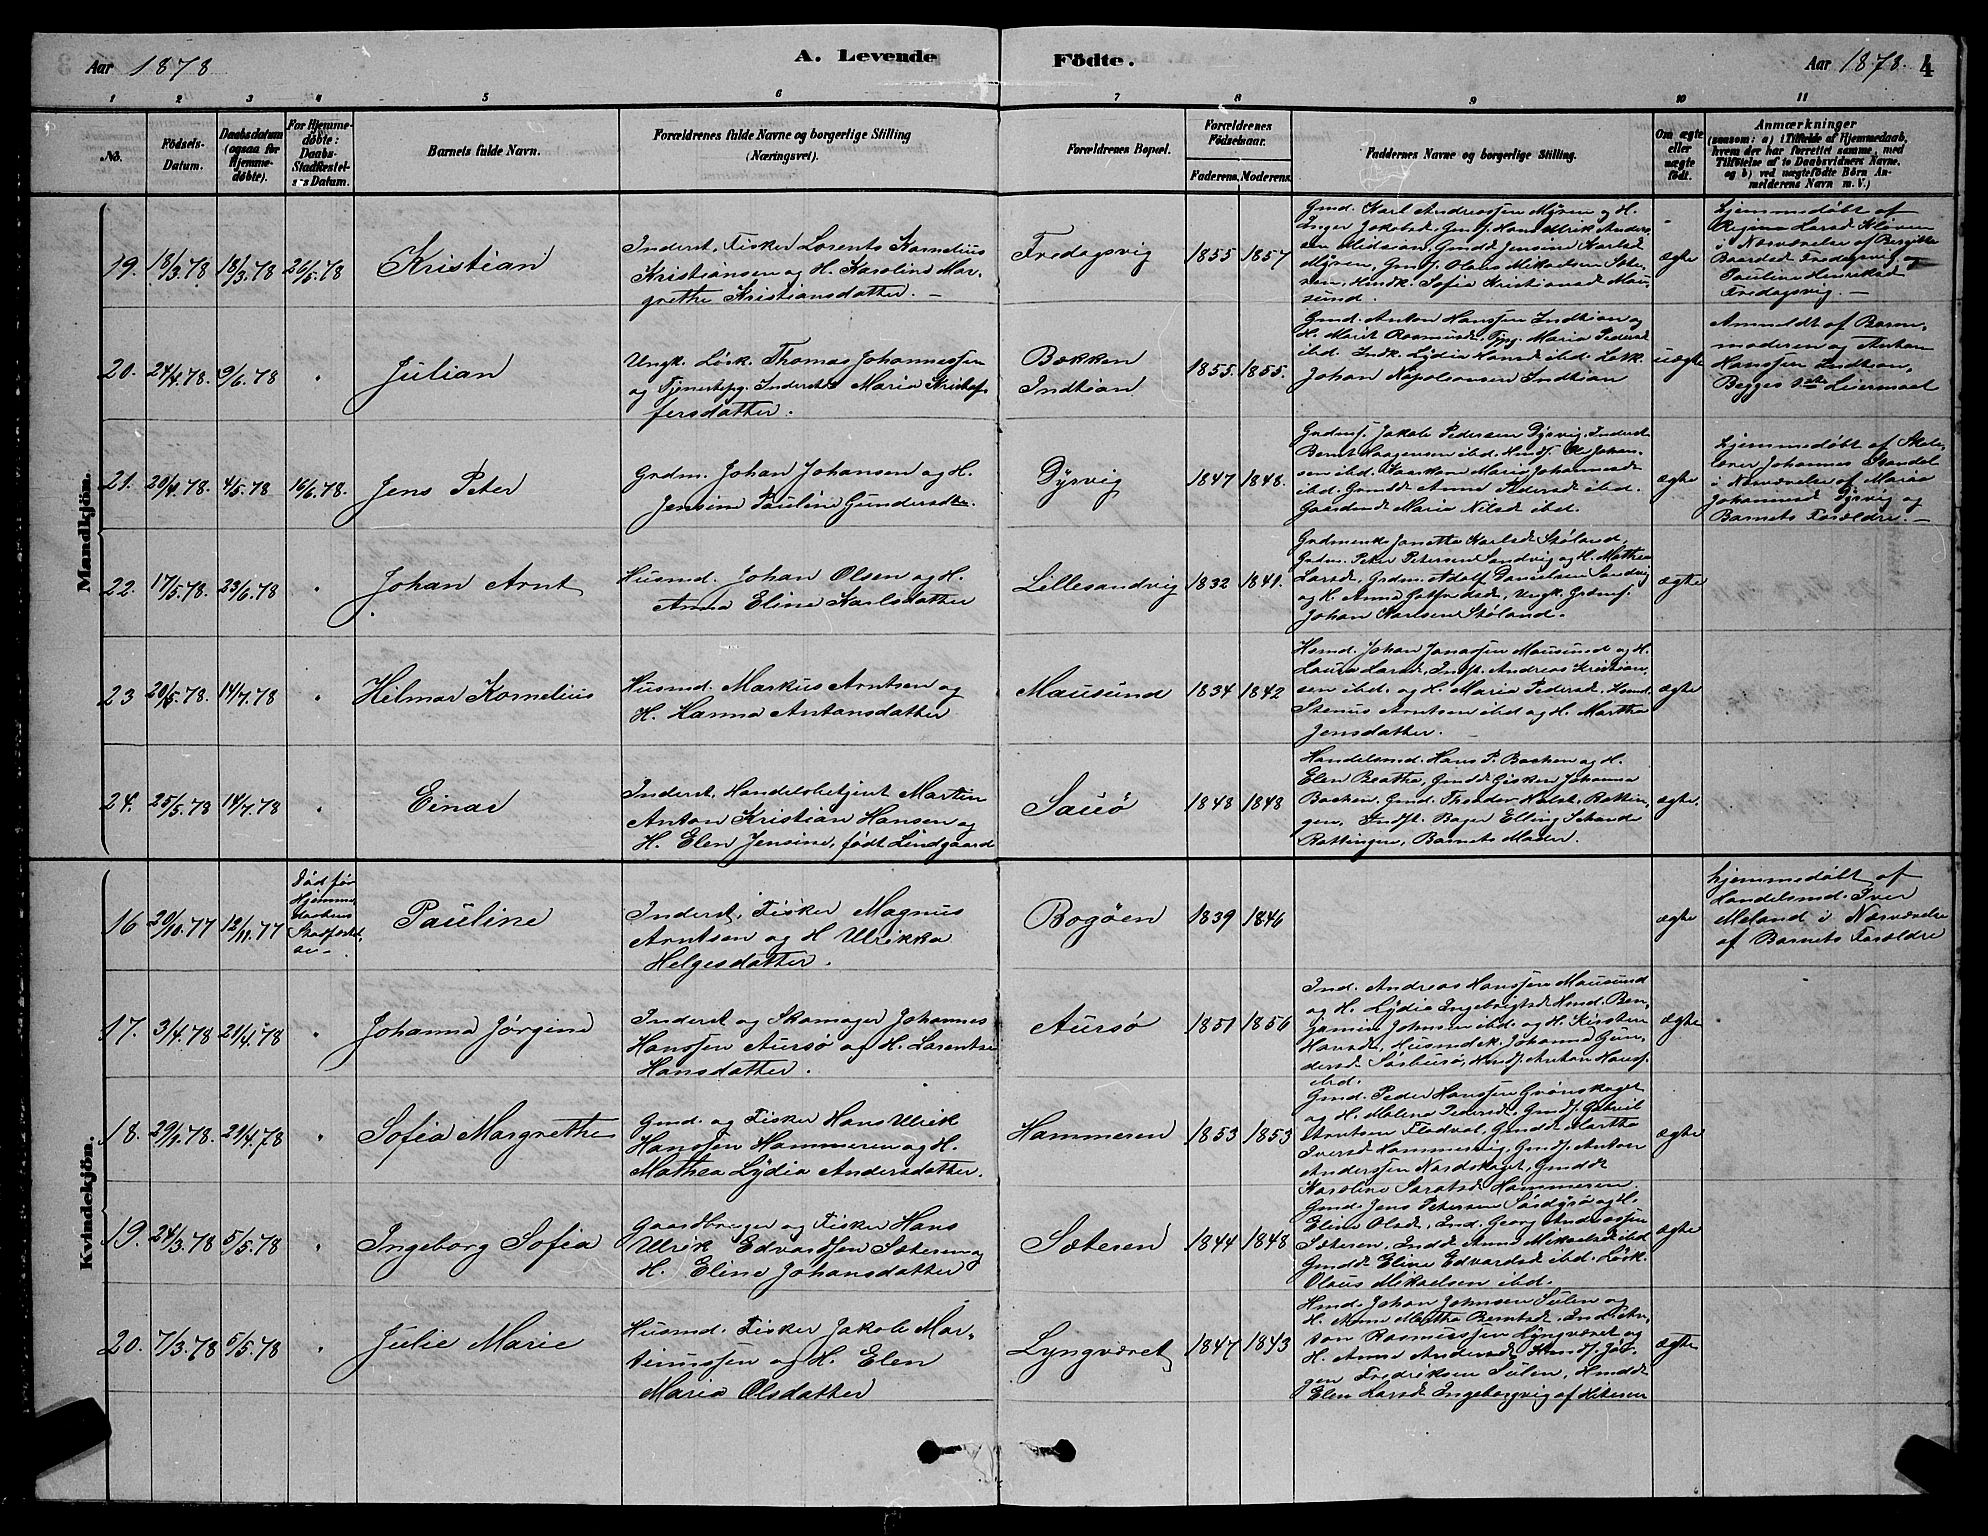 Aar 1878
A. Levende
Födte.
Aar 1878. 4
1 2 3 4 5 6 7 8 9 10 11
No.
Födsels-
Datum.
Daabsdatum
(ogsaa for
Hjemme-
döbte).
For Hjemme-
döbte:
Daabs-
Barnets fulde Navn.
Forældrenes fulde Navne og borgerlige Stilling
(Næringsvei).
Forældrenes Bopæl.
Forældrenes
Födselsaar.
Faderens. Moderens.
Faddernes Navne og borgerlige Stilling.
Om ægte
eller
uægte
födt.
Anmærkninger
(saasom: a) i Tilfælde af Hjemmedaab,
hvem der har forrettet samme, med
Tilföielse af to Daabsvidners Navne,
og b) ved uægtefödte Börn An-
melderens Navn m. V.)
Mandkjön.
19. 18/3.78 18/3.78 26/5.78
Kristian
Inderst, Fisker Lorents Kornelius
Kristiansen og H. Karoline Mar-
grethe Kristiansdatter. –
Fredagsvig
1855 1857
Gmd. Karl Andreassen Myren og H.
Myren, Gmds. Olaus Mikaelsen Sæte-
ren, Hmdk. Sofia Kristiansd. Mau-
sund.
ægte
Hjemmedøbt af
i Nærværelse af Bergitte
Baardsd. Fredagsvig og
Pauline Henriksd.
Fredagsvig. –
20. 24/4.78. 9/6.78 "
Julian
Ungk. Løsk. Thomas Johannessen
og Tjenestepg. Inderste Maria Kristof-
fersdatter.
Bækken
Indtian
1855. 1855.
Gmd. Anton Hanssen Indtian og
H. Marit Rasmusd., Tjpg. Maria Pedersd
ibd. Indk. Lydia Hansd. ibd. Løsk.
Johan Napoleonsen Indtian
uægte
Anmeldt af Barne-
moderen og Anton
Hanssen Indtian.
Begges 1ste Leiermaal
21. 20/4.78. 4/5.78 16/6.78.
Jens Peter
Grdm. Johan Johansen og H.
Jensine Pauline Gundersdtr.
Dyrvig
1847 1848.
Grdms. Jakob Pedersen Dyrvig, Inderst
ibd. Grmdd. Anne Pedersd. ibd.
Gaardmd. Maria Nilsd. ibd.
ægte
Hjemmedøbt af Skole-
lærer Johannes Strandel
i Nærværelse af Maria
Johannesd. Dyrvig og
Barnets Forældre. –
22. 17/5.78. 23/6.78 "
Johan Arnt
Husmd. Johan Olsen og H.
Anna Eline Karlsdatter
Lillesandvig
1832 1841.
Grdmenk. Jonetta Karlsd. Støland,
Grdm. Peter Petersen Sandvig og H. Mathea
Larsd., Grdm. Adolf Danielsen Sandvig
Johan Karlsen Støland.
ægte
23 20/5.78. 14/7.78 "
Hilmar Kornelius
Husmd. Markus Arntsen og
H. Hanna Antonsdatter
Mausund
1834 1842
Hsmd. Johan Jonassen Mausund og H.
Laura Larsd., Indst. Andreas Kristian-
sen ibd. og H. Maria Pedersd., Husmd.
Stenus Arntsen ibd og H. Martha
Jensdatter. –
ægte
24. 25/5.78 14/7.78 "
Einar
Inderst, Handelsbetjent Martin
Anton Kristian Hansen og
H. Elen Jensine, født Lindgaard
Sauø
1848 1848
Handelsmd. Hans P. Backen og H.
Elen Beatha, Gmdd. Gisken Johanna
Backen, Gmd. Theodor Holst, Rottin-
gen, Indst. Bager Elling Strand
Rottingen, Barnets Moder.
ægte.
Kvindekjön.
16 20/10.77 12/11.77
Død før
Hjemme-
daabens
Stadfæstel-
se –
Pauline
Inderst, Fisker Magnus
Arntsen og H Ulrikka
Helgesdatter.
Bogøen
1839 1846
ægte
Hjemmedøbt af
Handelsmd. Iver
Meland i Nærværelse
af Barnets Forældre
17. 3/4.78 21/4.78 "
Johanna Jørgine
Inderst og Skomager Johannes
Hanssen Aursø og H. Lorentse
Hansdatter.
Aursø
1851 1856
Ind. Andreas Hanssen Mausund
og H. Lydia Ingebrigtsd. Hmd. Ben-
jamin Johnsen ibd. og H. Kirsten
Hansd., Husmdek. Johanna Gun-
dersd. Sørbursø, Hmds. Anton Hanss.
ibd.
ægte
18. 29/1.78. 21/4.78 "
Sofia Margrethe
Gmd. og Fisker Hans Ulrik
Hanssen Hammeren og H.
Mathea Lydia Andersdatter.
Hammeren
1853 1853
Gmd. Peder Hanssen Grønskaget
og H. Malena Pedersd., Gmds. Gabriel
Arntsen Flodval, Gmdd. Martha
Iversd. Hammervig, Gmds. Anton
Anderssen Nordskaget, Gmdd.
Karoline Hammeren.
ægte
19. 24/3.78 5/5.78 "
Ingeborg Sofia
Gaardbruger og Fisker Hans
Ulrik Edvardsen Sæteren og
H. Eline Johansdatter
Sæteren
1844 1848
Gmd. Jens Petersen Sørdyrø og H.
Eline Olsd., Ind. Georg Andreassen
Sæteren, Indd. Anne Mikaelsd. ibd
Gmdd. Eline Edvardsd. ibd. Løsk.
Olaus Mikaelsen ibd.
ægte
20. 7/3.78 5/5.78 "
Julie Marie
Husmd. Fisker Jakob Mar-
tinussen og H. Elen
Maria Olsdatter
Lyngværet
1847 1843
Hmd. Johan Johnsen Sulen og
H. Anne Martha Berntsd., Ind.
Rasmussen Lyngværet og
H. Anne Andersd., Hmds. Jør-
gen Fredriksen Sulen, Hmdd.
Elen Larsd. Ingeborgvig af Hiteren
ægte